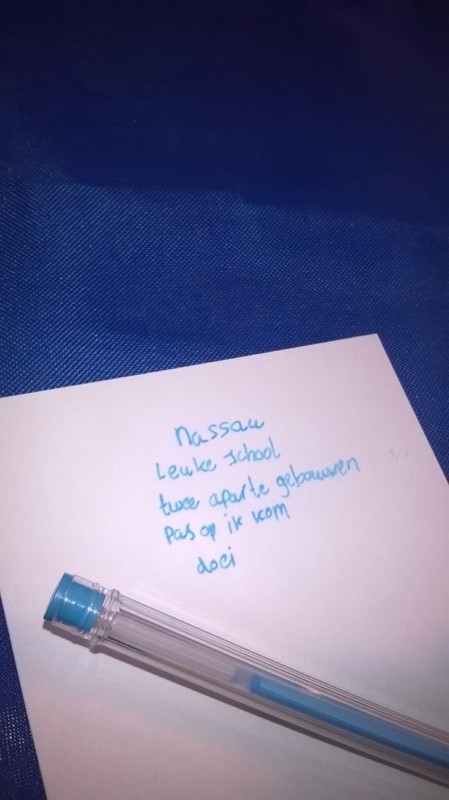 Nassau
Leuke school
twee aparte gebouwen
pas op ik kom
doei